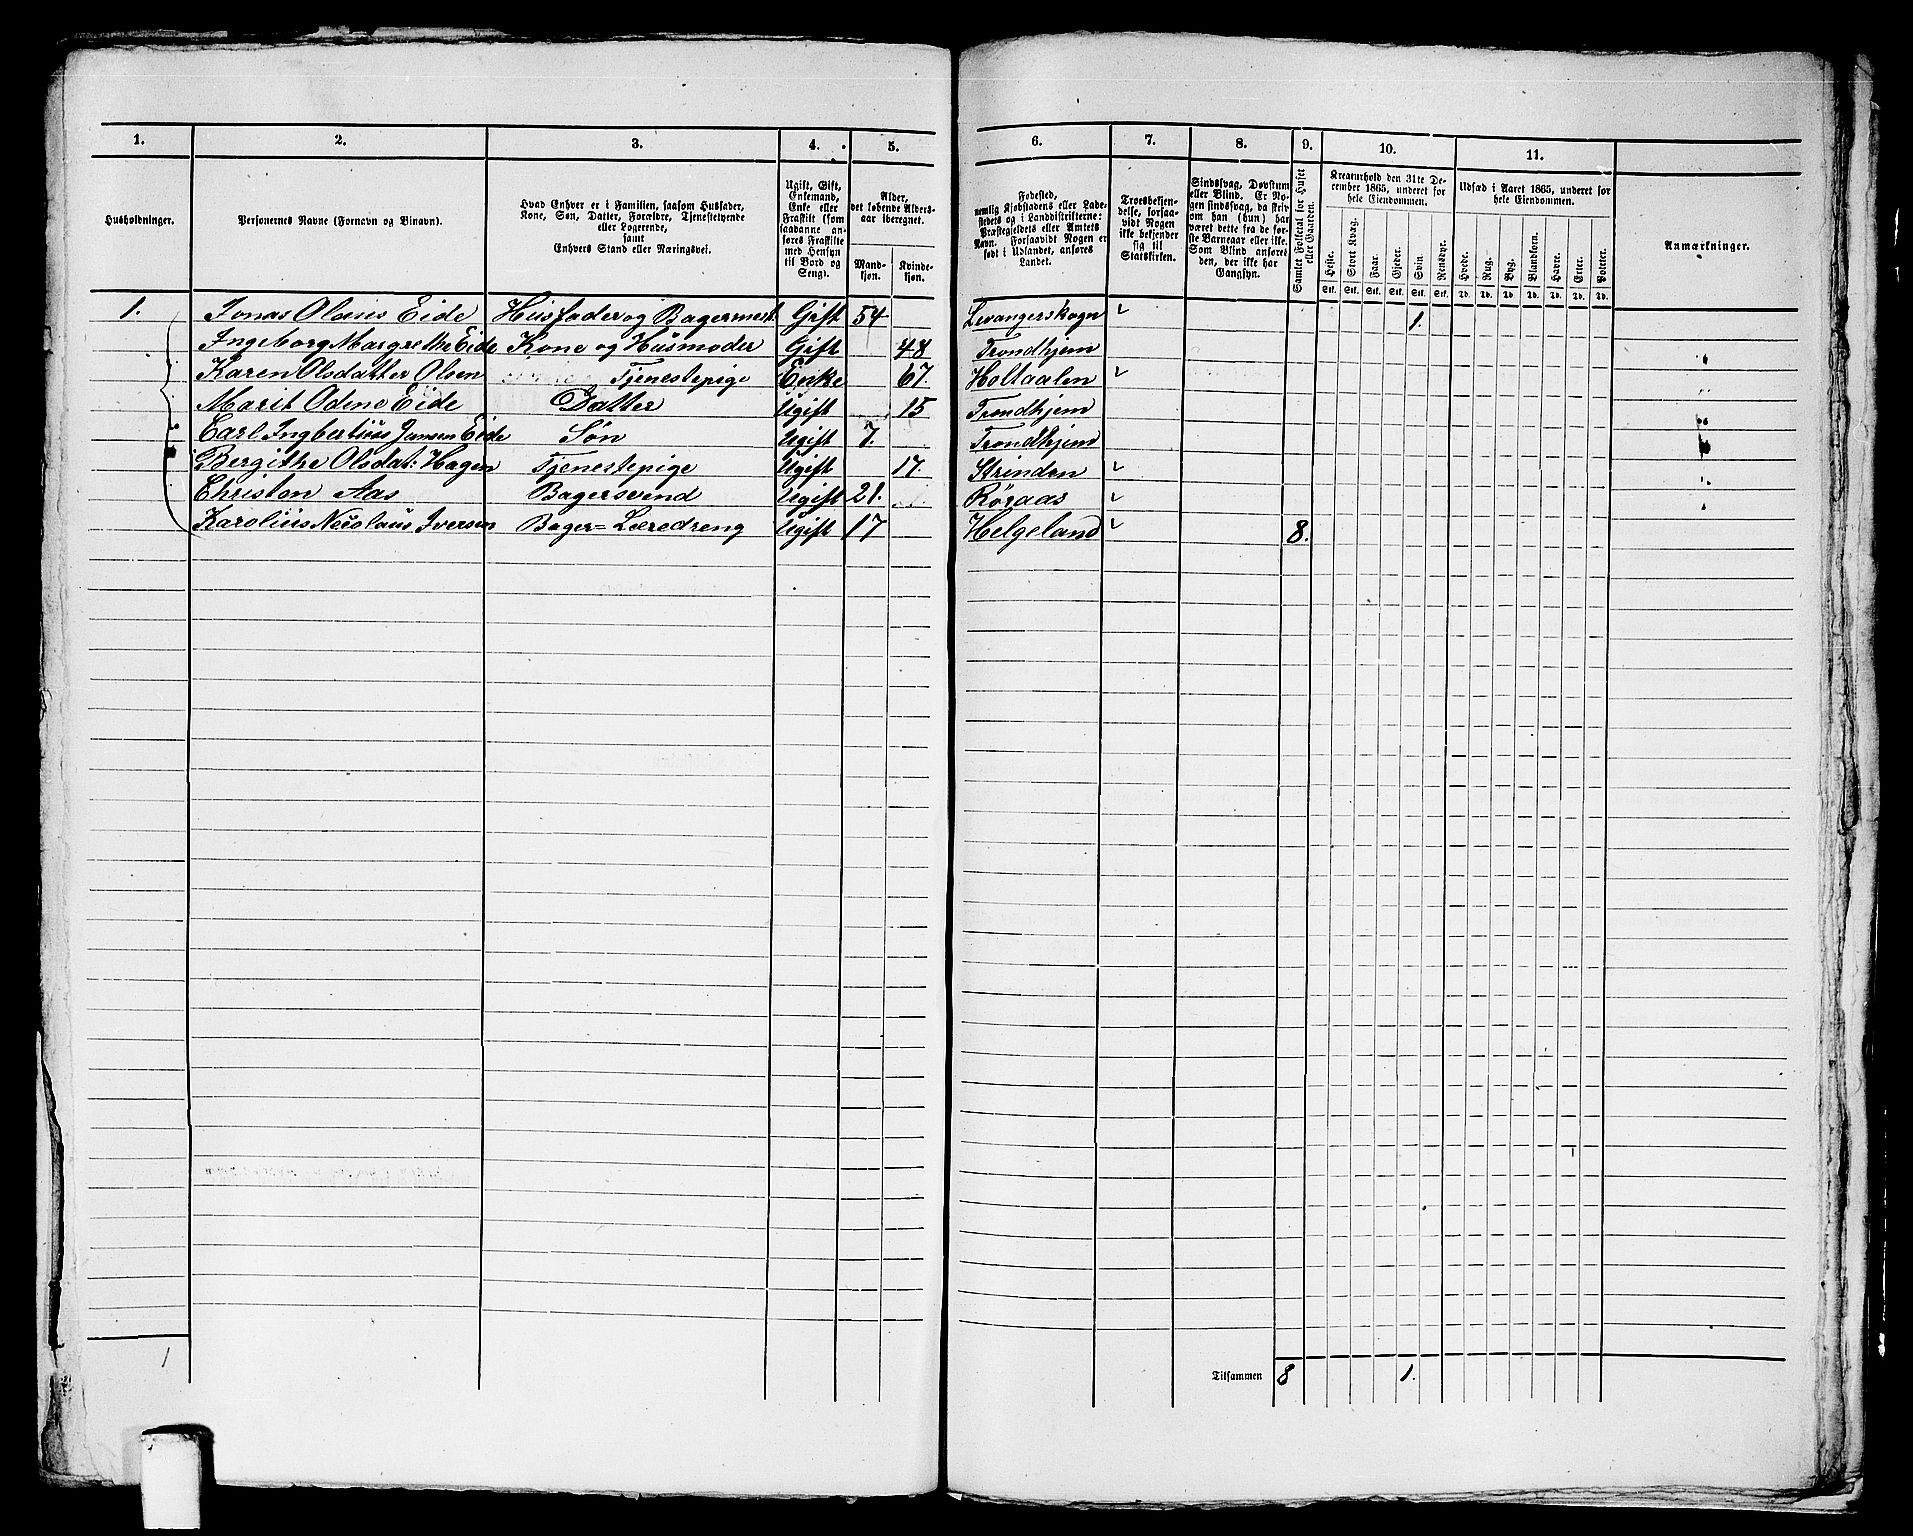 1. 2. 3. 4. 5. 6. 7. 8. 9. 10. 11.
Husholdninger.
Personernes Navne (Fornavn og Binavn).
Hvad Enhver er i Familien, saasom Husfader,
Kone, Søn, Datter, Forældre, Tjenestetyende
eller Logerende,
samt
Enhvers Stand eller Næringsvei.
Ugift, Gift,
Enkemand,
Enke eller
Fraskilt (som
saadanne an-
føres Fraskilte
med Hensyn
til Bord og
Seng).
Alder,
det løbende Alders-
aar iberegnet.
Mand-
kjøn.
Kvinde-
kjøn.
Fødested,
nemlig Kjøbstadens eller Lade-
stedets og i Landdistrikterne:
Præstegjeldets eller Amtets
Navn. Forsaavidt Nogen er
født i Udlandet, anføres
Landet.
Troesbekjen-
delse, forsaa-
vidt Nogen
ikke bekjender
sig til
Statskirken.
Sindssvag, Døvstum
eller Blind. Er No-
gen sindssvag, da skriv
om han (hun) har
været dette fra de før-
ste Barneaar eller ikke.
Som Blind anføres
den, der ikke har
Gangsyn.
Samlet Folketal for Huset
eller Gaarden.
Kreaturhold den 31te De-
cember 1865, underet for
hele Eiendommen.
Heste. Stort Kvæg. Faar. Gjeder. Svin. Rensdyr.
Stk. Stk. Stk. Stk. Stk. Stk.
Udsæd i Aaret 1865, underet for
hele Eiendommen.
Hvede. Rug. Byg. Blandkorn. Havre. Erter. Poteter.
Td. Td. Td. Td. Td. Td. Td.
Anmærkninger.
1. Jonas Olaus Eide Husfader og Bagermest. Gift 54 Levangerskogn 1.
Ingeborg Margrethe Eide Kone og Husmoder Gift 48 Trondhjem
Karen Olsdatter Olsen Tjenestepige Enke 67. Holtaalen
Marit Odene Eide Datter Ugift 15 Trondhjem
Carl Ingbertius Jonsen Eide Søn Ugift 7. Trondhjem
Bergithe Olsdat: Hagen Tjenestepige Ugift 17. Strinden
Christen Aas Bagersvend Ugift 21. Röraas
Karolius Nicolaus Iversen Bager= Læredreng Ugift 17 Helgeland 8.
1
Tilsammen 8 1.